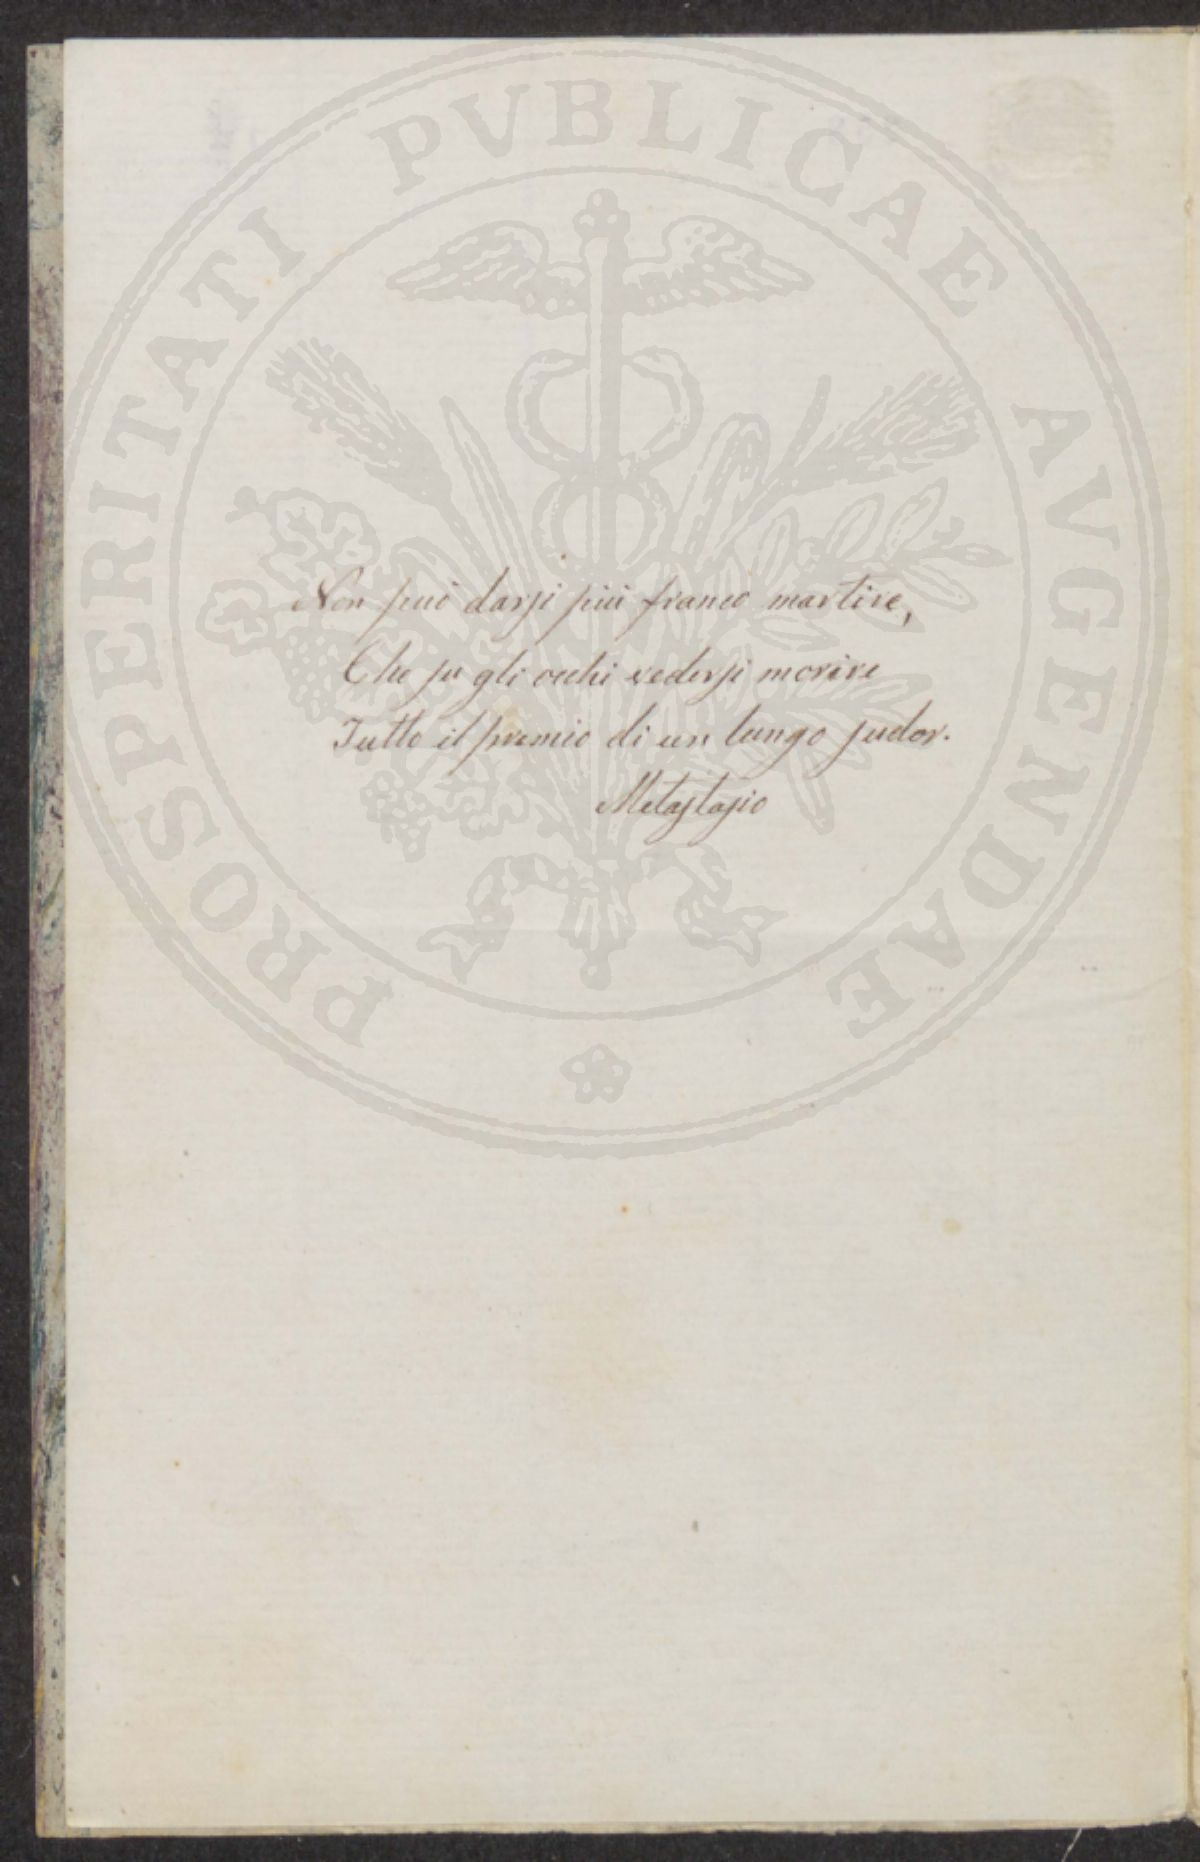 PROSPERITATI PVBLICAE AVGENDAE
Non può darsi più franco martire,
Che su gli occhi vedersi morire
Tutto il premio di un lungo sudor.
Metastasio